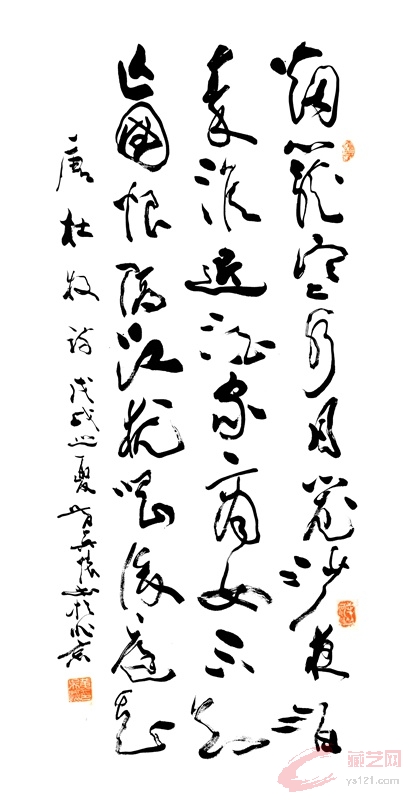 烟籠寒水月籠沙夜泊
秦淮近酒家商女不知
亡國恨隔江犹唱後庭花
唐杜牧詩戊戌之夏於北京
藏艺网
ys121.com